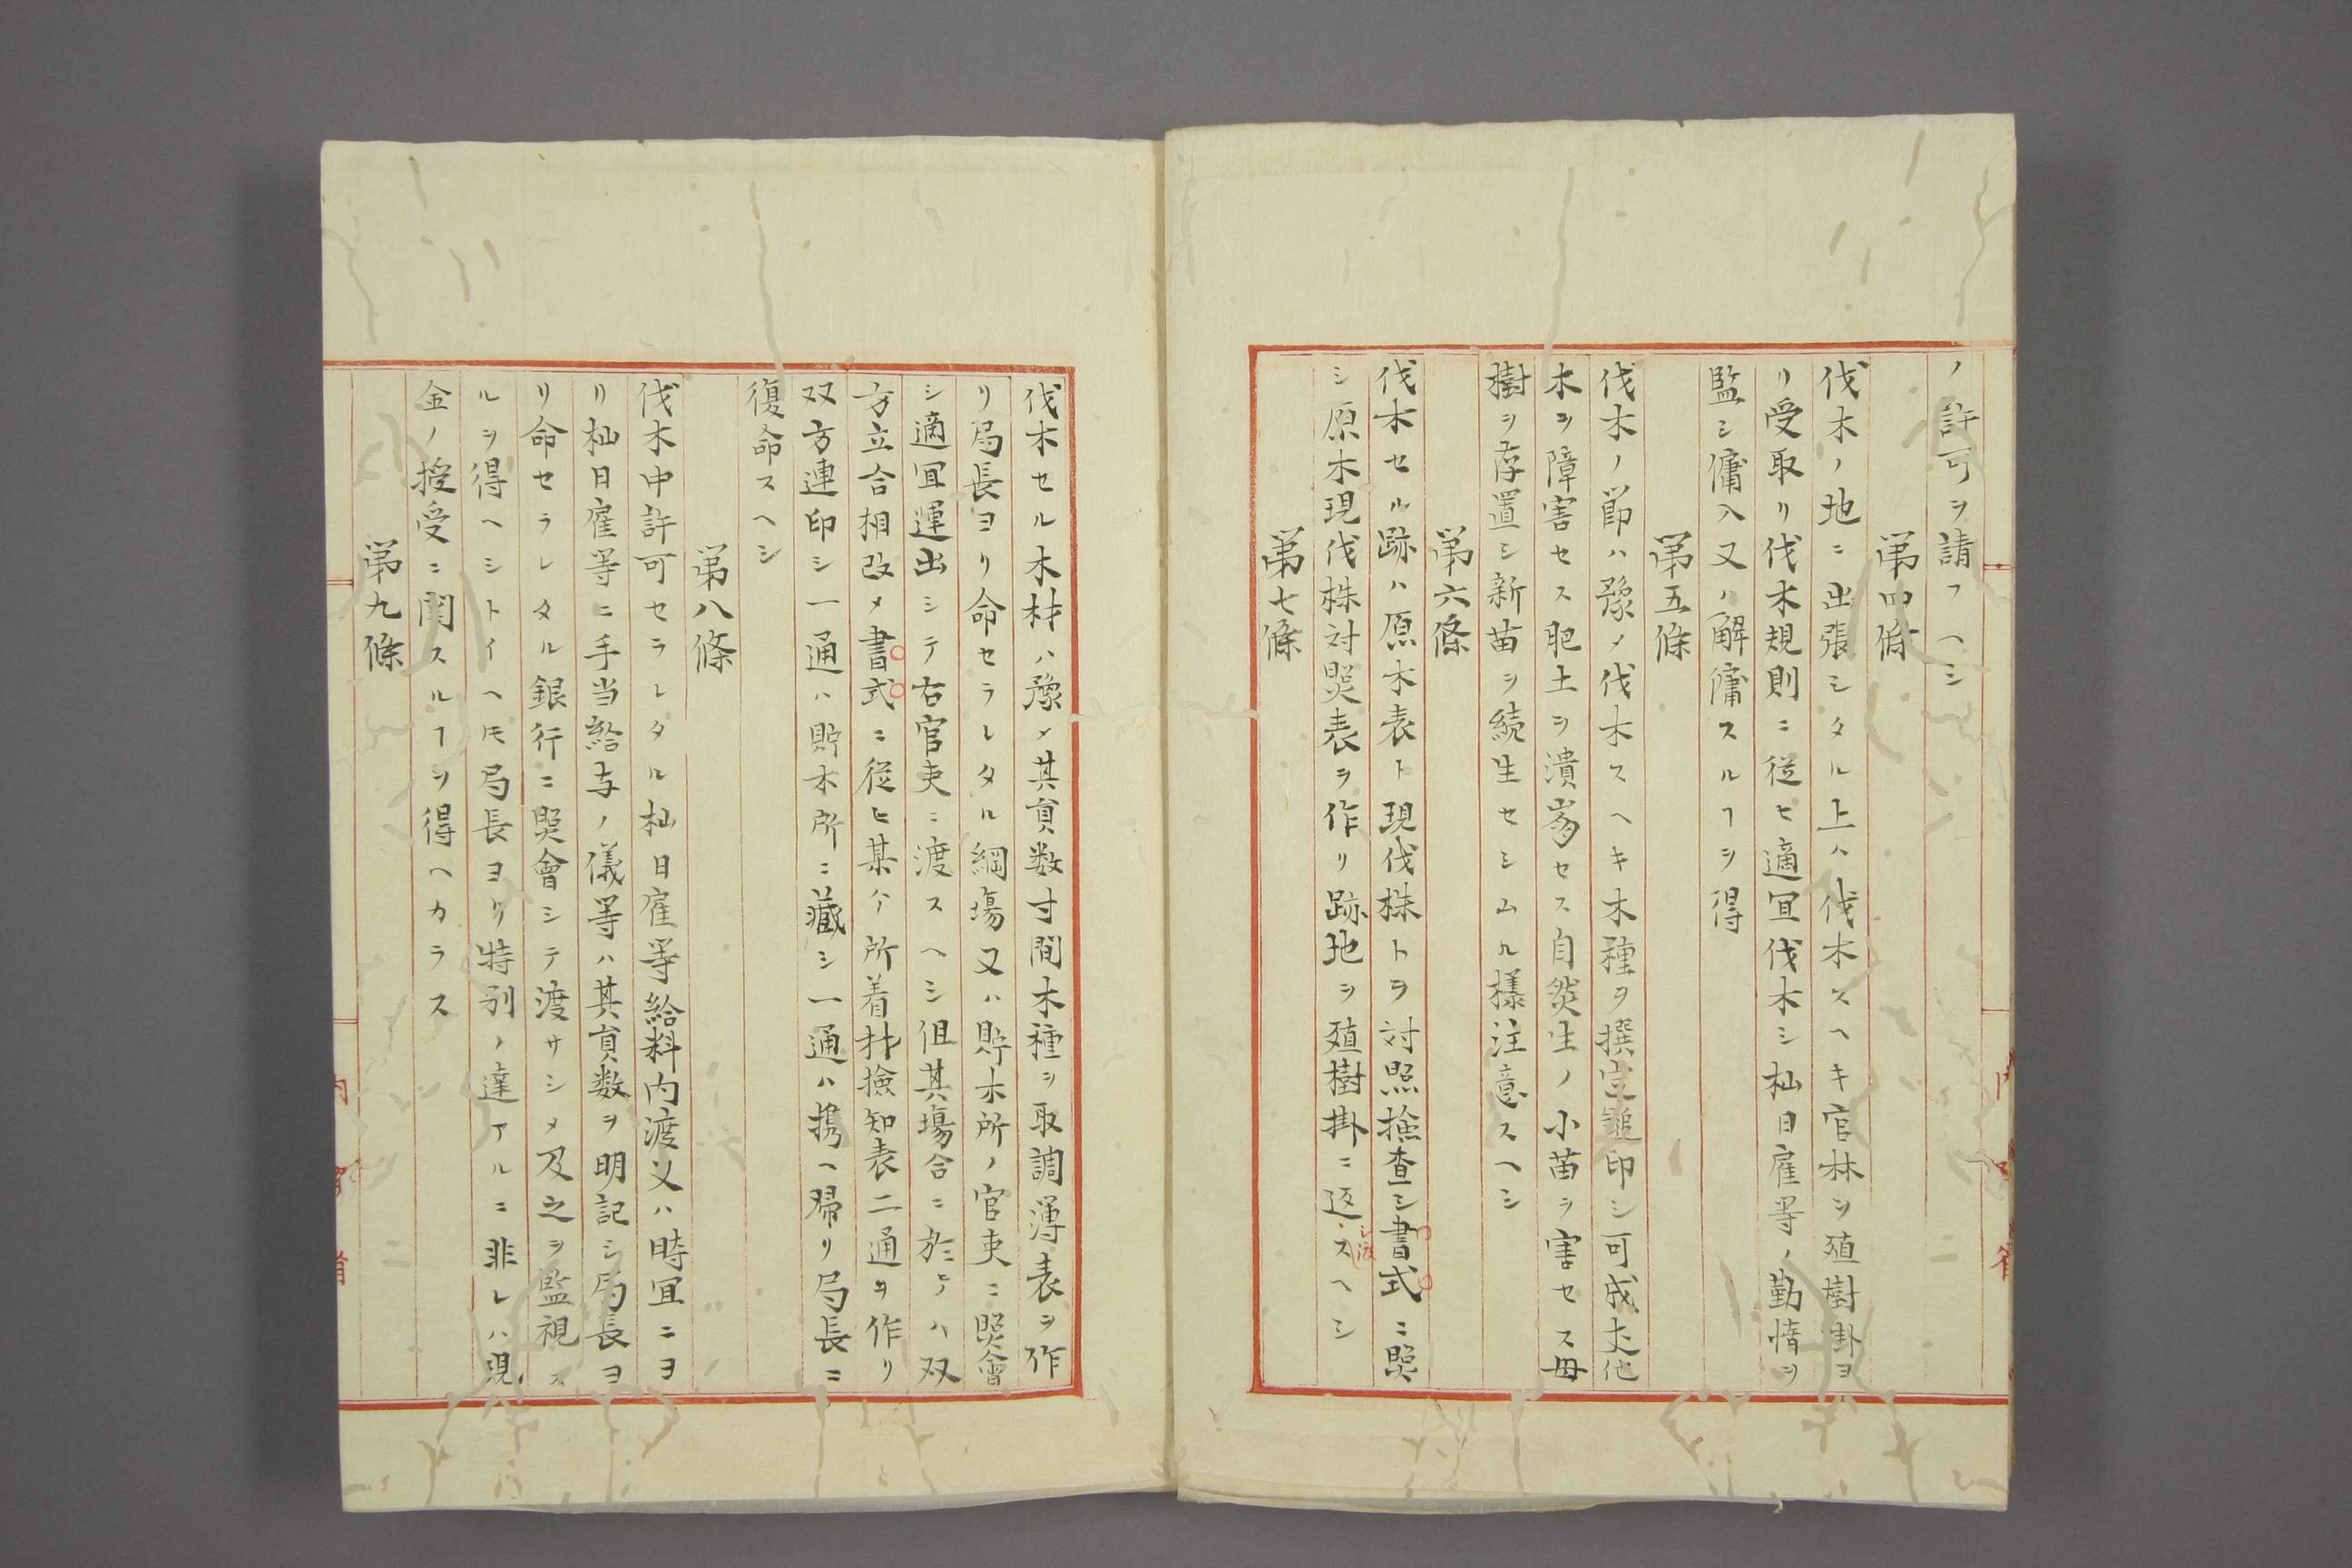 ノ許可ヲ請フヘシ
第四條
伐木ノ地ニ出張シタル上ハ伐木スヘキ官林ヲ殖樹掛ヨ
リ受取リ伐木規則ニ従ヒ適冝伐木シ杣日雇等ノ勤惰ヲ
監シ傭入又ハ解傭スルヿヲ得
第五條
伐木ノ節ハ豫メ伐木スヘキ木種ヲ撰定鎚印シ可成丈他
木ヲ障害セス肥土ヲ潰崩セス自然生ノ小苗ヲ害セス母
樹ヲ存置シ新苗ヲ続生セシムル様注意スヘシ
第六條
伐木セル跡ハ原木表ト現伐株トヲ対照撿查シ書式ニ照
シ原木現伐株対照表ヲ作リ跡地ヲ殖樹掛ニ返スヘシ
シ渡
第七條
伐木セル木材ハ豫メ其員数寸間木種ヲ取調薄表ヲ作
リ局長ヨリ命セラレタル綱塲又ハ貯木所ノ官吏ニ照會
シ適冝運出シテ右官吏ニ渡スヘシ但其塲合ニ於テハ双
方立合相改メ書式ニ従ヒ某ケ所着材撿知表二通ヲ作リ
双方連印シ一通ハ貯木所ニ藏シ一通ハ携ヘ帰リ局長ニ
復命スヘシ
第八條
伐木中許可セラレタル杣日雇等給料内渡又ハ時冝ニヨ
リ杣日雇等ニ手当給与ノ儀等ハ其員数ヲ明記シ局長ヨ
リ命セラレタル銀行ニ照會シテ渡サシメ及之ヲ監視ス
ルヲ得ヘシトイヘ𪜈局長ヨリ特別ノ達アルニ非レハ現
金ノ授受ニ関スルヿヲ得ヘカラス
第九條
二